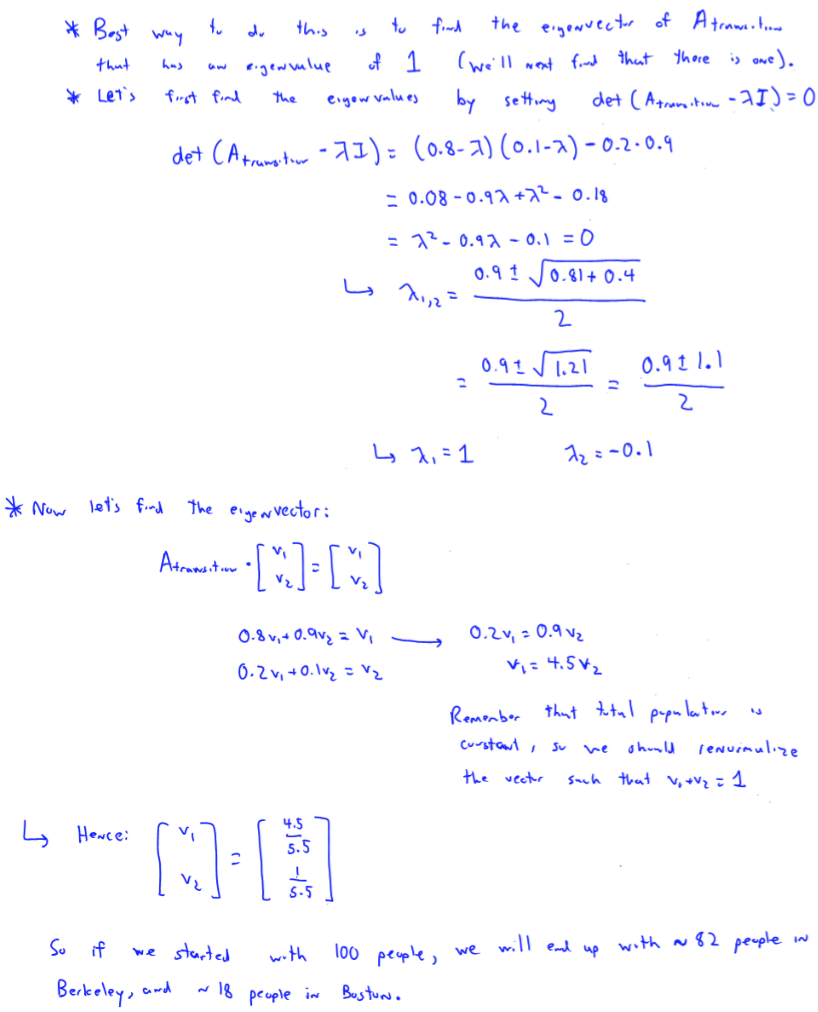 * Best way to do this is to find the eigenvector of A transition
that has an eigenvalue of 1 (we'll next find that there is one).
* Let's first find the eigenvalues by setting det (A transition - λI) = 0
det (A transition - λI) = (0.8-λ)(0.1-λ) - 0.2·0.9
= 0.08 - 0.9λ + λ² - 0.18
= λ² - 0.9λ - 0.1 = 0
↳ λ₁,₂ = (0.9 ± √(0.81 + 0.4)) / 2
= (0.9 ± √1.21) / 2 = (0.9 ± 1.1) / 2
↳ λ₁ = 1 λ₂ = -0.1
* Now let's find the eigenvector:
A transition · [v₁ v₂] = [v₁ v₂]
0.8v₁ + 0.9v₂ = v₁ → 0.2v₁ = 0.9v₂
0.2v₁ + 0.1v₂ = v₂ v₁ = 4.5v₂
Remember that total population is
constant, so we should renormalize
the vector such that v₁+v₂ = 1
↳ Hence: [v₁ v₂] = [4.5/5.5 1/5.5]
So if we started with 100 people, we will end up with ~ 82 people in
Berkeley, and ~ 18 people in Boston.